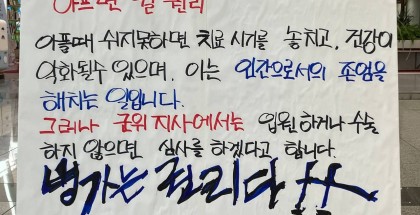 아프면 쉴 권리
아플때 쉬지못하면 치료 시기를 놓치고, 건강이
악화될수 있으며, 이는 인간으로서의 존엄을
해치는 일입니다.
그러나 군위지사에서는 입원하거나 수술
하지 않으면 심사를 하겠다고 합니다.
병가는 권리다